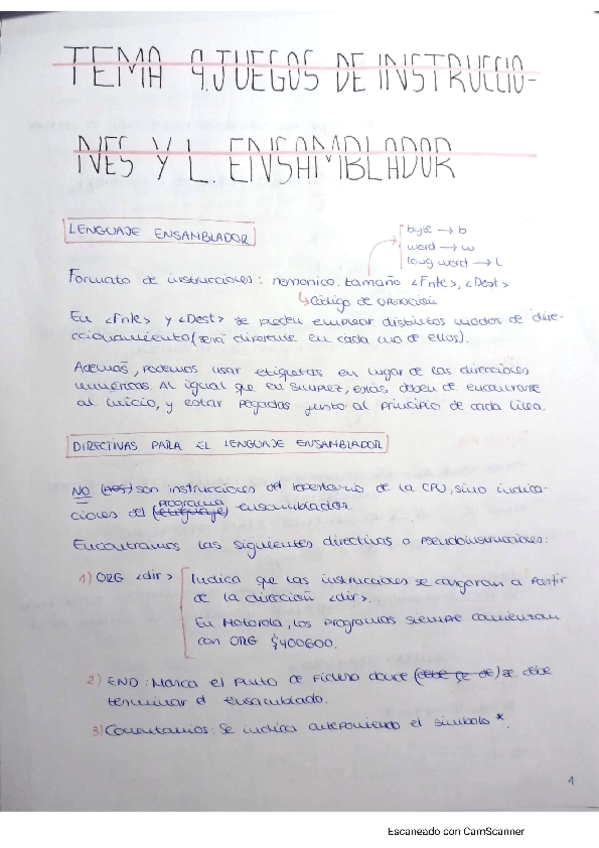 TEMA 9. JUEGOS DE INSTRUCCIO-
NES Y L. ENSAMBLADOR
LENGUAJE ENSAMBLADOR
byte → b
word → w
long word → L
Formato de instrucciones: nemonico.tamaño <Fnte>, <Dest>
↳ Código de operación
En <Fnte> y <Dest> se pueden emplear distintos modos de dire-
ccionamiento (será diferente en cada uno de ellos).
Además, podemos usar etiquetas en lugar de las direcciones
numéricas. Al igual que en símplez, estas deben de encontrarse
al inicio, y estar pegadas justo al principio de cada línea.
DIRECTIVAS PARA EL LENGUAJE ENSAMBLADOR
NO son instrucciones del repertorio de la CPU, sino indica-
programa
ciones del (lenguaje) ensamblador.
Encontramos las siguientes directivas o pseudoinstrucciones:
1) ORG <dir> Indica que las instrucciones se cargaran a partir
de la dirección <dir>.
En Motorola, los programas siempre comienzan
con ORG $400600.
2) END: Marca el punto de fichero donde (debe de) se debe
terminar el ensamblado.
3) Comentarios: Se indica anteponiendo el símbolo *.
1
Escaneado con CamScanner